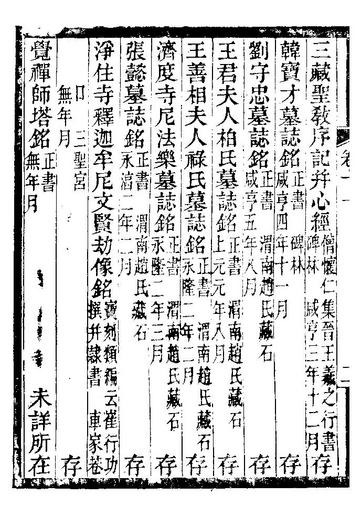 三藏聖教序記幷心經 僧懷仁集晉王羲之行書 碑林 咸亨三年十二月 存
韓寶才墓誌銘 正書 碑林 咸亨四年十一月 存
劉守忠墓誌銘 正書 渭南趙氏藏石 咸亨五年八月 存
王君夫人柏氏墓誌銘 正書 渭南趙氏藏石 上元元年八月 存
王善相夫人祿氏墓誌銘 正書 渭南趙氏藏石 永隆二年二月 存
濟度寺尼法樂墓誌銘 正書 渭南趙氏藏石 永隆二年三月 存
張懿墓誌銘 正書 渭南趙氏藏石 永湻二年二月 存
淨住寺釋迦牟尼文賢劫像銘 寶刻類編云崔行功撰幷隸書 車家巷
三聖宮 無年月 存
覺禪師塔銘 正書 無年月 未詳所在
卷一
二